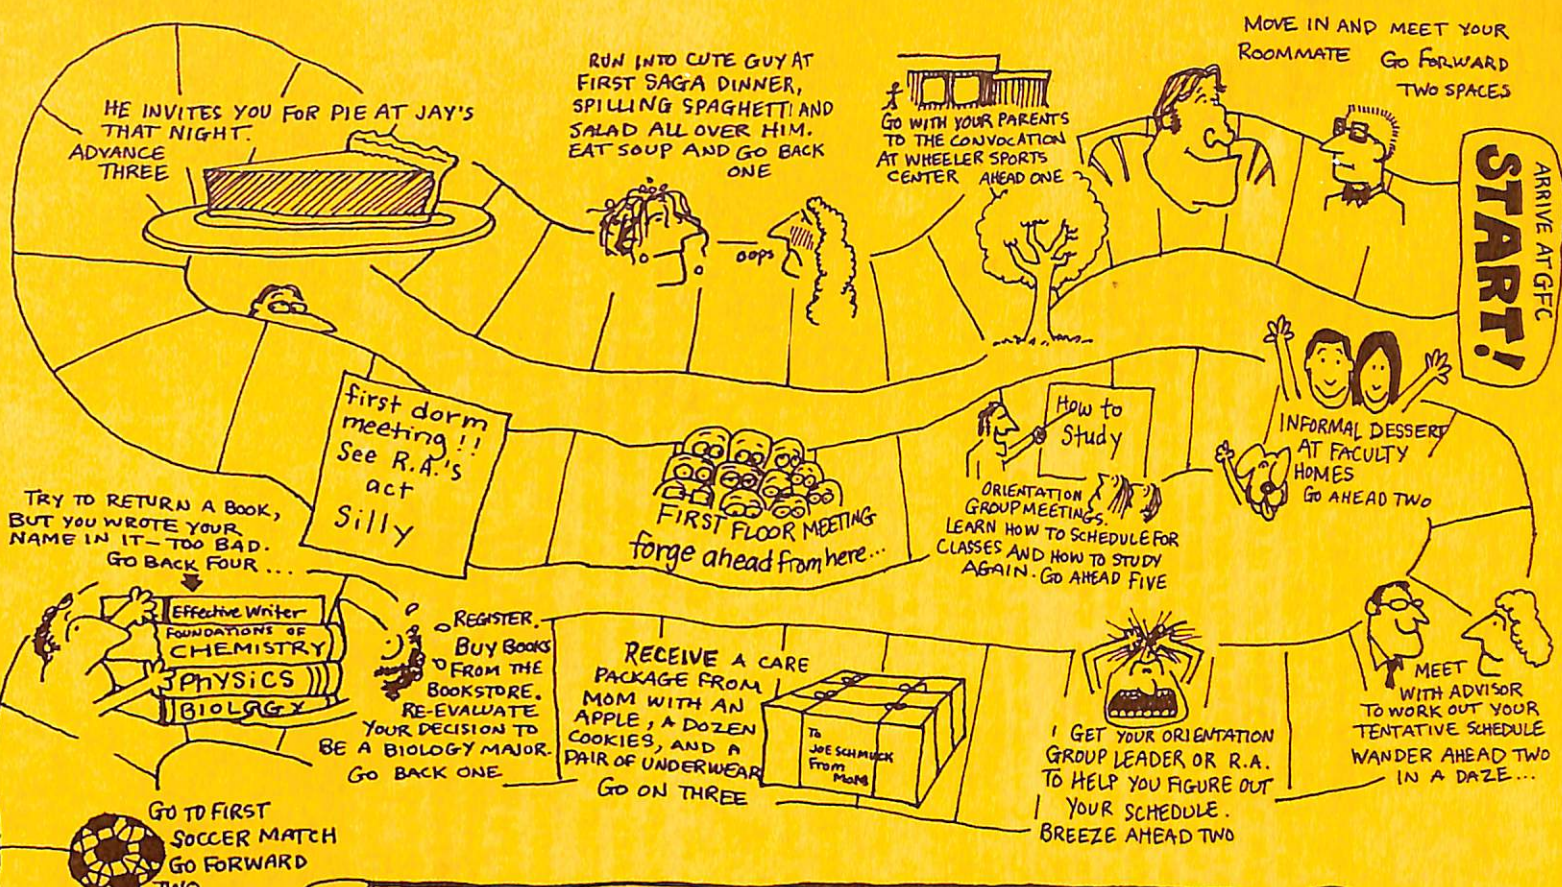 ARRIVE AT GFC
START!
MOVE IN AND MEET YOUR
ROOMMATE GO FORWARD
TWO SPACES
GO WITH YOUR PARENTS
TO THE CONVOCATION
AT WHEELER SPORTS
CENTER AHEAD ONE
RUN INTO CUTE GUY AT
FIRST SAGA DINNER,
SPILLING SPAGHETTI AND
SALAD ALL OVER HIM.
EAT SOUP AND GO BACK
ONE
OOPS
HE INVITES YOU FOR PIE AT JAY'S
THAT NIGHT.
ADVANCE
THREE
first dorm
meeting!!
See R.A.'s
act
Silly
FIRST FLOOR MEETING
forge ahead from here...
How to
Study
ORIENTATION
GROUP MEETINGS.
LEARN HOW TO SCHEDULE FOR
CLASSES AND HOW TO STUDY
AGAIN. GO AHEAD FIVE
INFORMAL DESSERT
AT FACULTY
HOMES
GO AHEAD TWO
MEET
WITH ADVISOR
TO WORK OUT YOUR
TENTATIVE SCHEDULE
WANDER AHEAD TWO
IN A DAZE...
GET YOUR ORIENTATION
GROUP LEADER OR R.A.
TO HELP YOU FIGURE OUT
YOUR SCHEDULE.
BREEZE AHEAD TWO
RECEIVE A CARE
PACKAGE FROM
MOM WITH AN
APPLE, A DOZEN
COOKIES, AND A
PAIR OF UNDERWEAR
GO ON THREE
To
JOE SCHMUCK
From
MOM
REGISTER.
BUY BOOKS
FROM THE
BOOKSTORE.
RE-EVALUATE
YOUR DECISION TO
BE A BIOLOGY MAJOR.
GO BACK ONE
TRY TO RETURN A BOOK,
BUT YOU WROTE YOUR
NAME IN IT - TOO BAD.
GO BACK FOUR ...
Effective Writer
FOUNDATIONS OF
CHEMISTRY
PHYSICS
BIOLOGY
GO TO FIRST
SOCCER MATCH
GO FORWARD
TWO